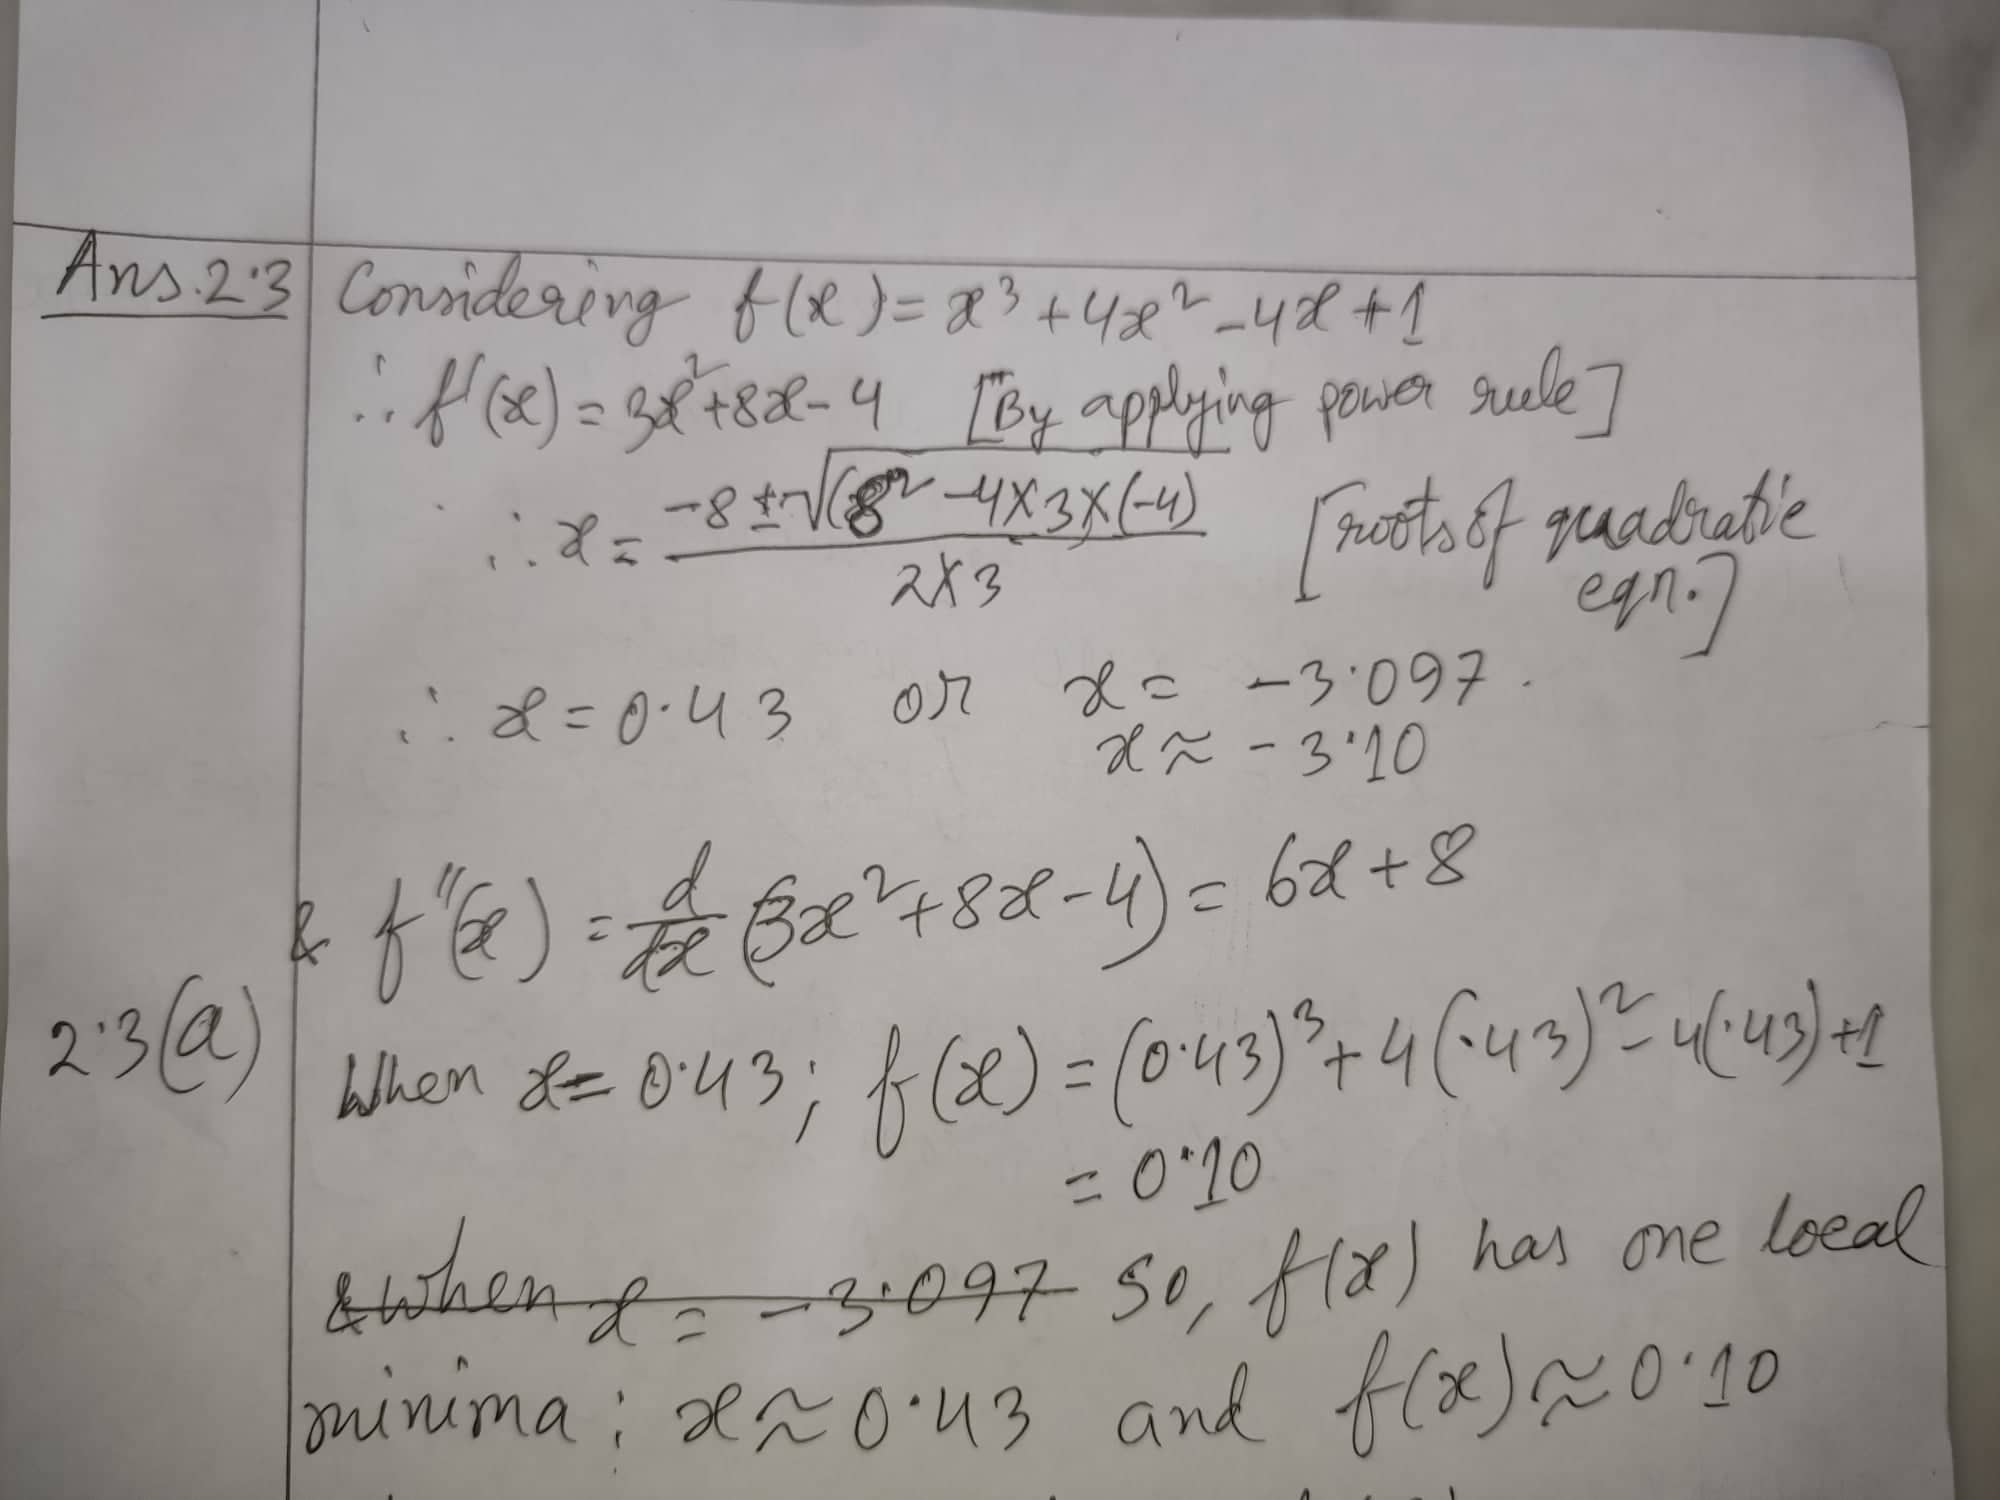 Ans.2.3 Considering f(x) = x³ + 4x² - 4x + 1
∴ f'(x) = 3x² + 8x - 4 [By applying power rule]
∴ x = (-8 ± √(8² - 4×3×(-4))) / (2×3) [roots of quadratic
eqn.]
∴ x = 0.43 or x = -3.097.
x ≈ -3.10
& f''(x) = d/dx (3x² + 8x - 4) = 6x + 8
2.3(a) When x = 0.43; f(x) = (0.43)³ + 4(.43)² - 4(.43) + 1
= 0.10
& when x = -3.097 So, f(x) has one local
minima; x ≈ 0.43 and f(x) ≈ 0.10